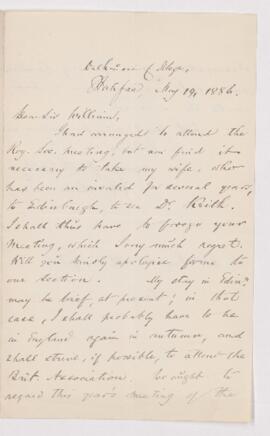 Dalhousie College,
Halifax, May 19, 1886.
Dear Sir William,
I had arranged to attend the
Roy. Soc. meeting, but now find it
necessary to take my wife, who
has been an invalid for several years,
to Edinburgh, to see Dr. Keith.
I shall thus have to forego your
meeting, which I very much regret.
Will you kindly apologise for me to
our section. My stay in Edinr.
may be brief, at present; in that
case, I shall probably have to be
in England again in autumn, and
shall strive, if possible, to attend the
Brit. Association. We ought to
regard this year's meeting of the